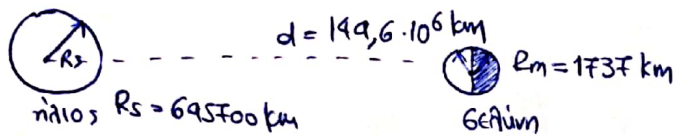 d = 149,6·10⁶ km
Rs
Rm = 1737 km
ήλιος Rs = 695700 km
σελήνη